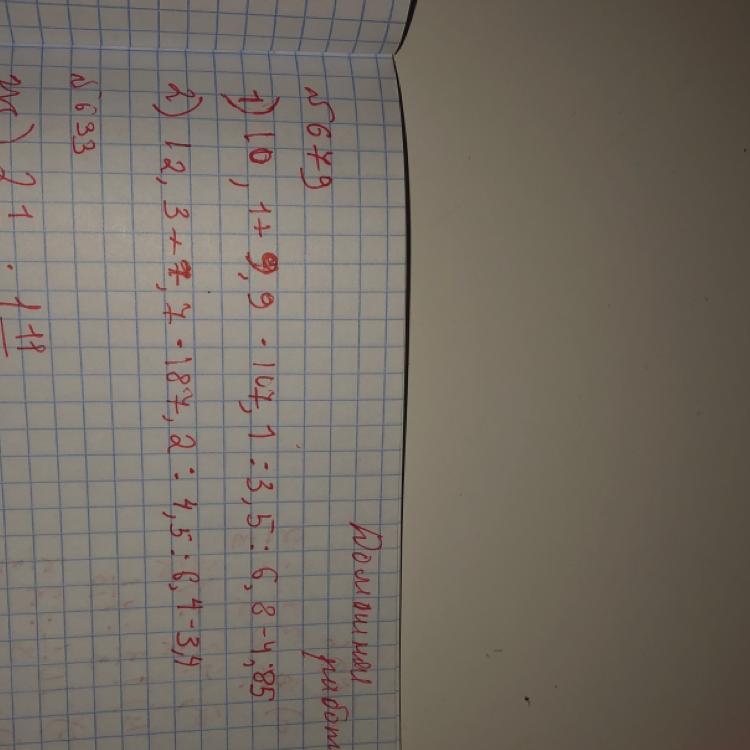 Домашняя
работ
№ 679
1) 10,1+9,9·107,1:3,5:6,8-4,85
2) 12,3+7,7·187,2:4,5:6,4-3,4
№ 633